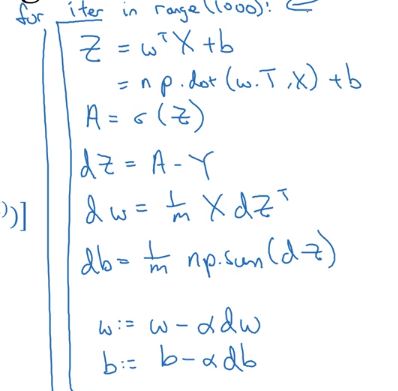 for iter in range(1000): ←
Z = wᵀX + b
= np.dot(w.T, X) + b
A = σ(Z)
dZ = A - Y
))]
dw = 1/m X dZᵀ
db = 1/m np.sum(dZ)
w := w - αdw
b := b - αdb